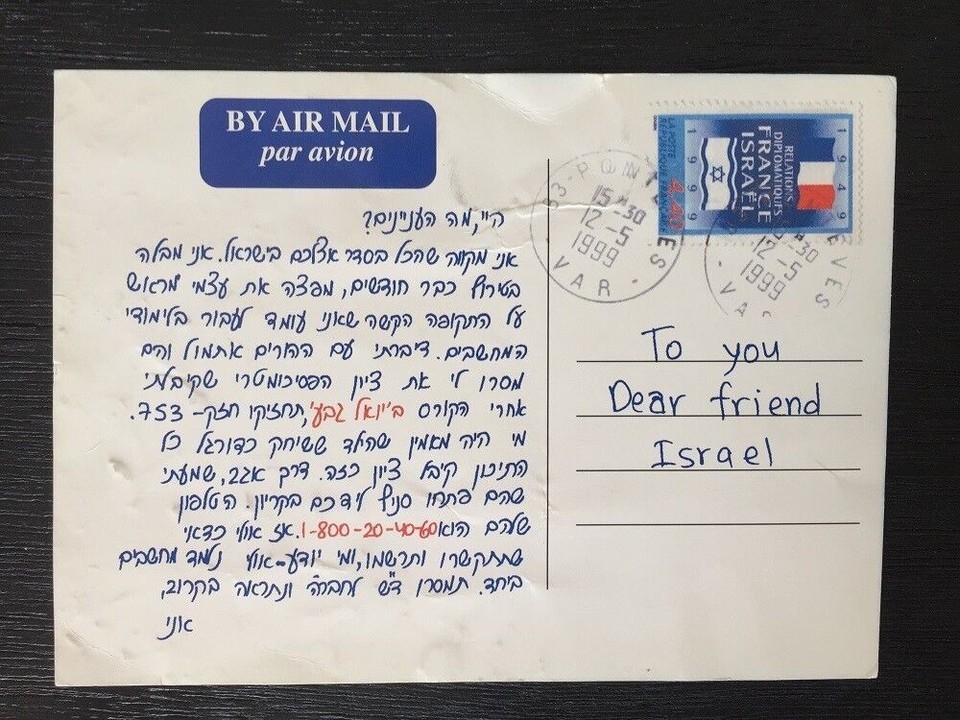 BY AIR MAIL
par avion
היי, מה העניינים?
אני מקווה שהכל בסדר אצלכם בישראל. אני מבלה
בטירוף כבר חודשים, מפצה את עצמי מראש
על התקופה הקשה שאני עומד לעבור בלימודי
המחשבים. דיברתי עם ההורים אתמול והם
מסרו לי את ציון הפסיכומטרי שקיבלתי
אחרי הקורס ב'יואל גבע', תחזיקו חזק- 753.
מי היה מאמין שהילד ששיחק כדורגל כל
התיכון קיבל ציון כזה. דרך אגב, שמעתי
שהם פתחו סניף לידכם בקריון. הטלפון
שלהם הוא 1-800-20-40-60. אז אולי כדאי
שתתקשרו ותרשמו, ומי יודע-אולי נלמד מחשבים
ביחד. תמסרו ד"ש לחבר'ה ונתראה בקרוב,
אוני
LA POSTE
RÉPUBLIQUE FRANÇAISE
4,40
1999
RELATIONS
DIPLOMATIQUES
FRANCE
ISRAËL
1949
83-PONTEVES
15-30
12-5
1999
VAR
EVES
-30
12-5
1999
VA
To you
Dear friend
Israel